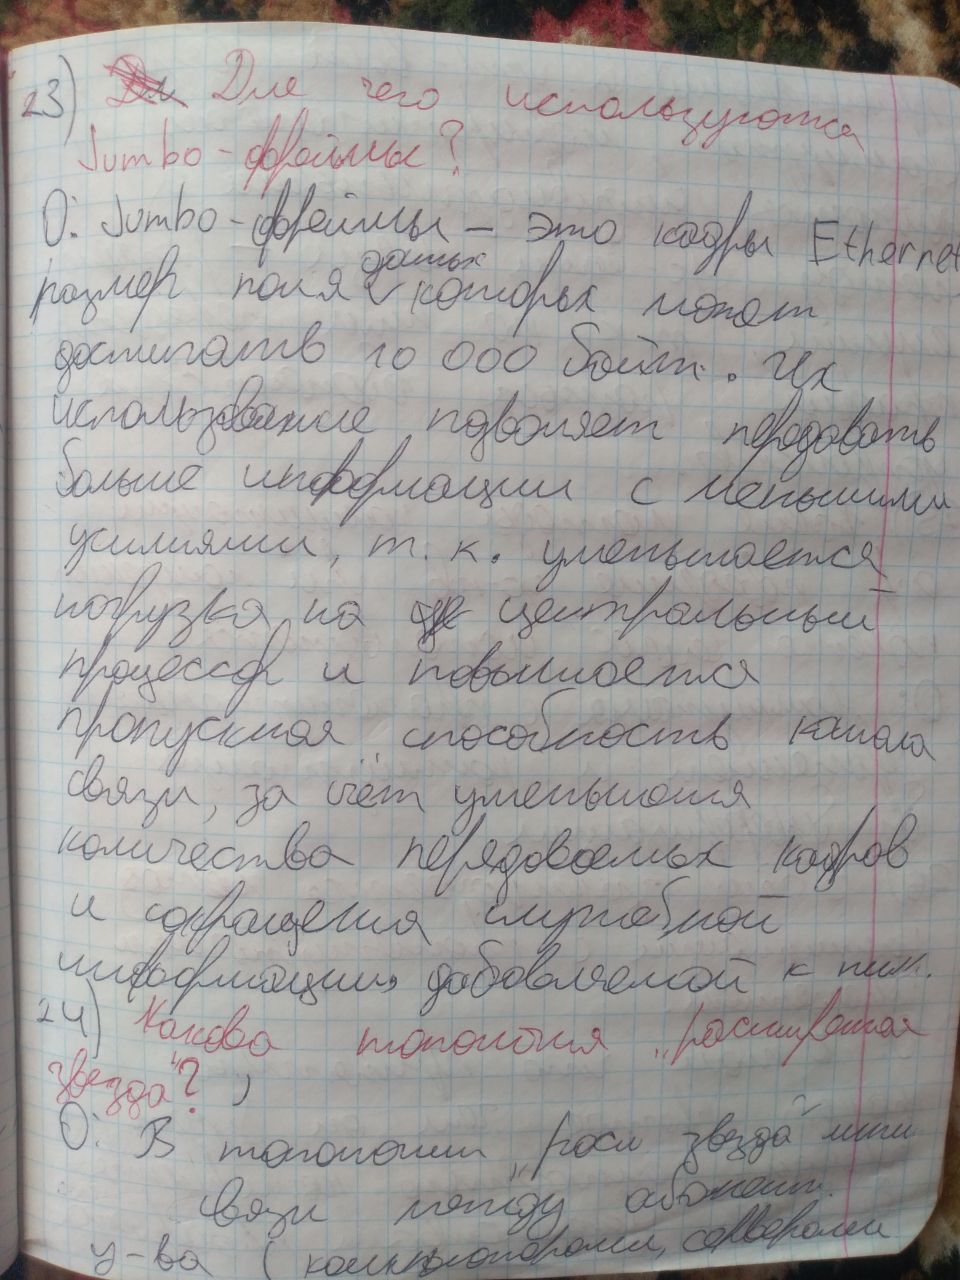 23) Для чего используются
Jumbo-фреймы?
О: Jumbo-фреймы – это кадры Ethernet
размер поля данных которых может
достигать 10 000 байт. Их
использование позволяет передавать
больше информации с меньшими
усилиями, т. к. уменьшается
нагрузка на центральный
процессор и повышается
пропускная способность канала
связи, за счёт уменьшения
количества передаваемых кадров
и сокращения служебной
информации, добавляемой к ним.
24) Какова топология „расширенная
звезда"?
О: В топологии „расш звезда" линии
связи между абонент.
у-ва (компьютерами, серверами